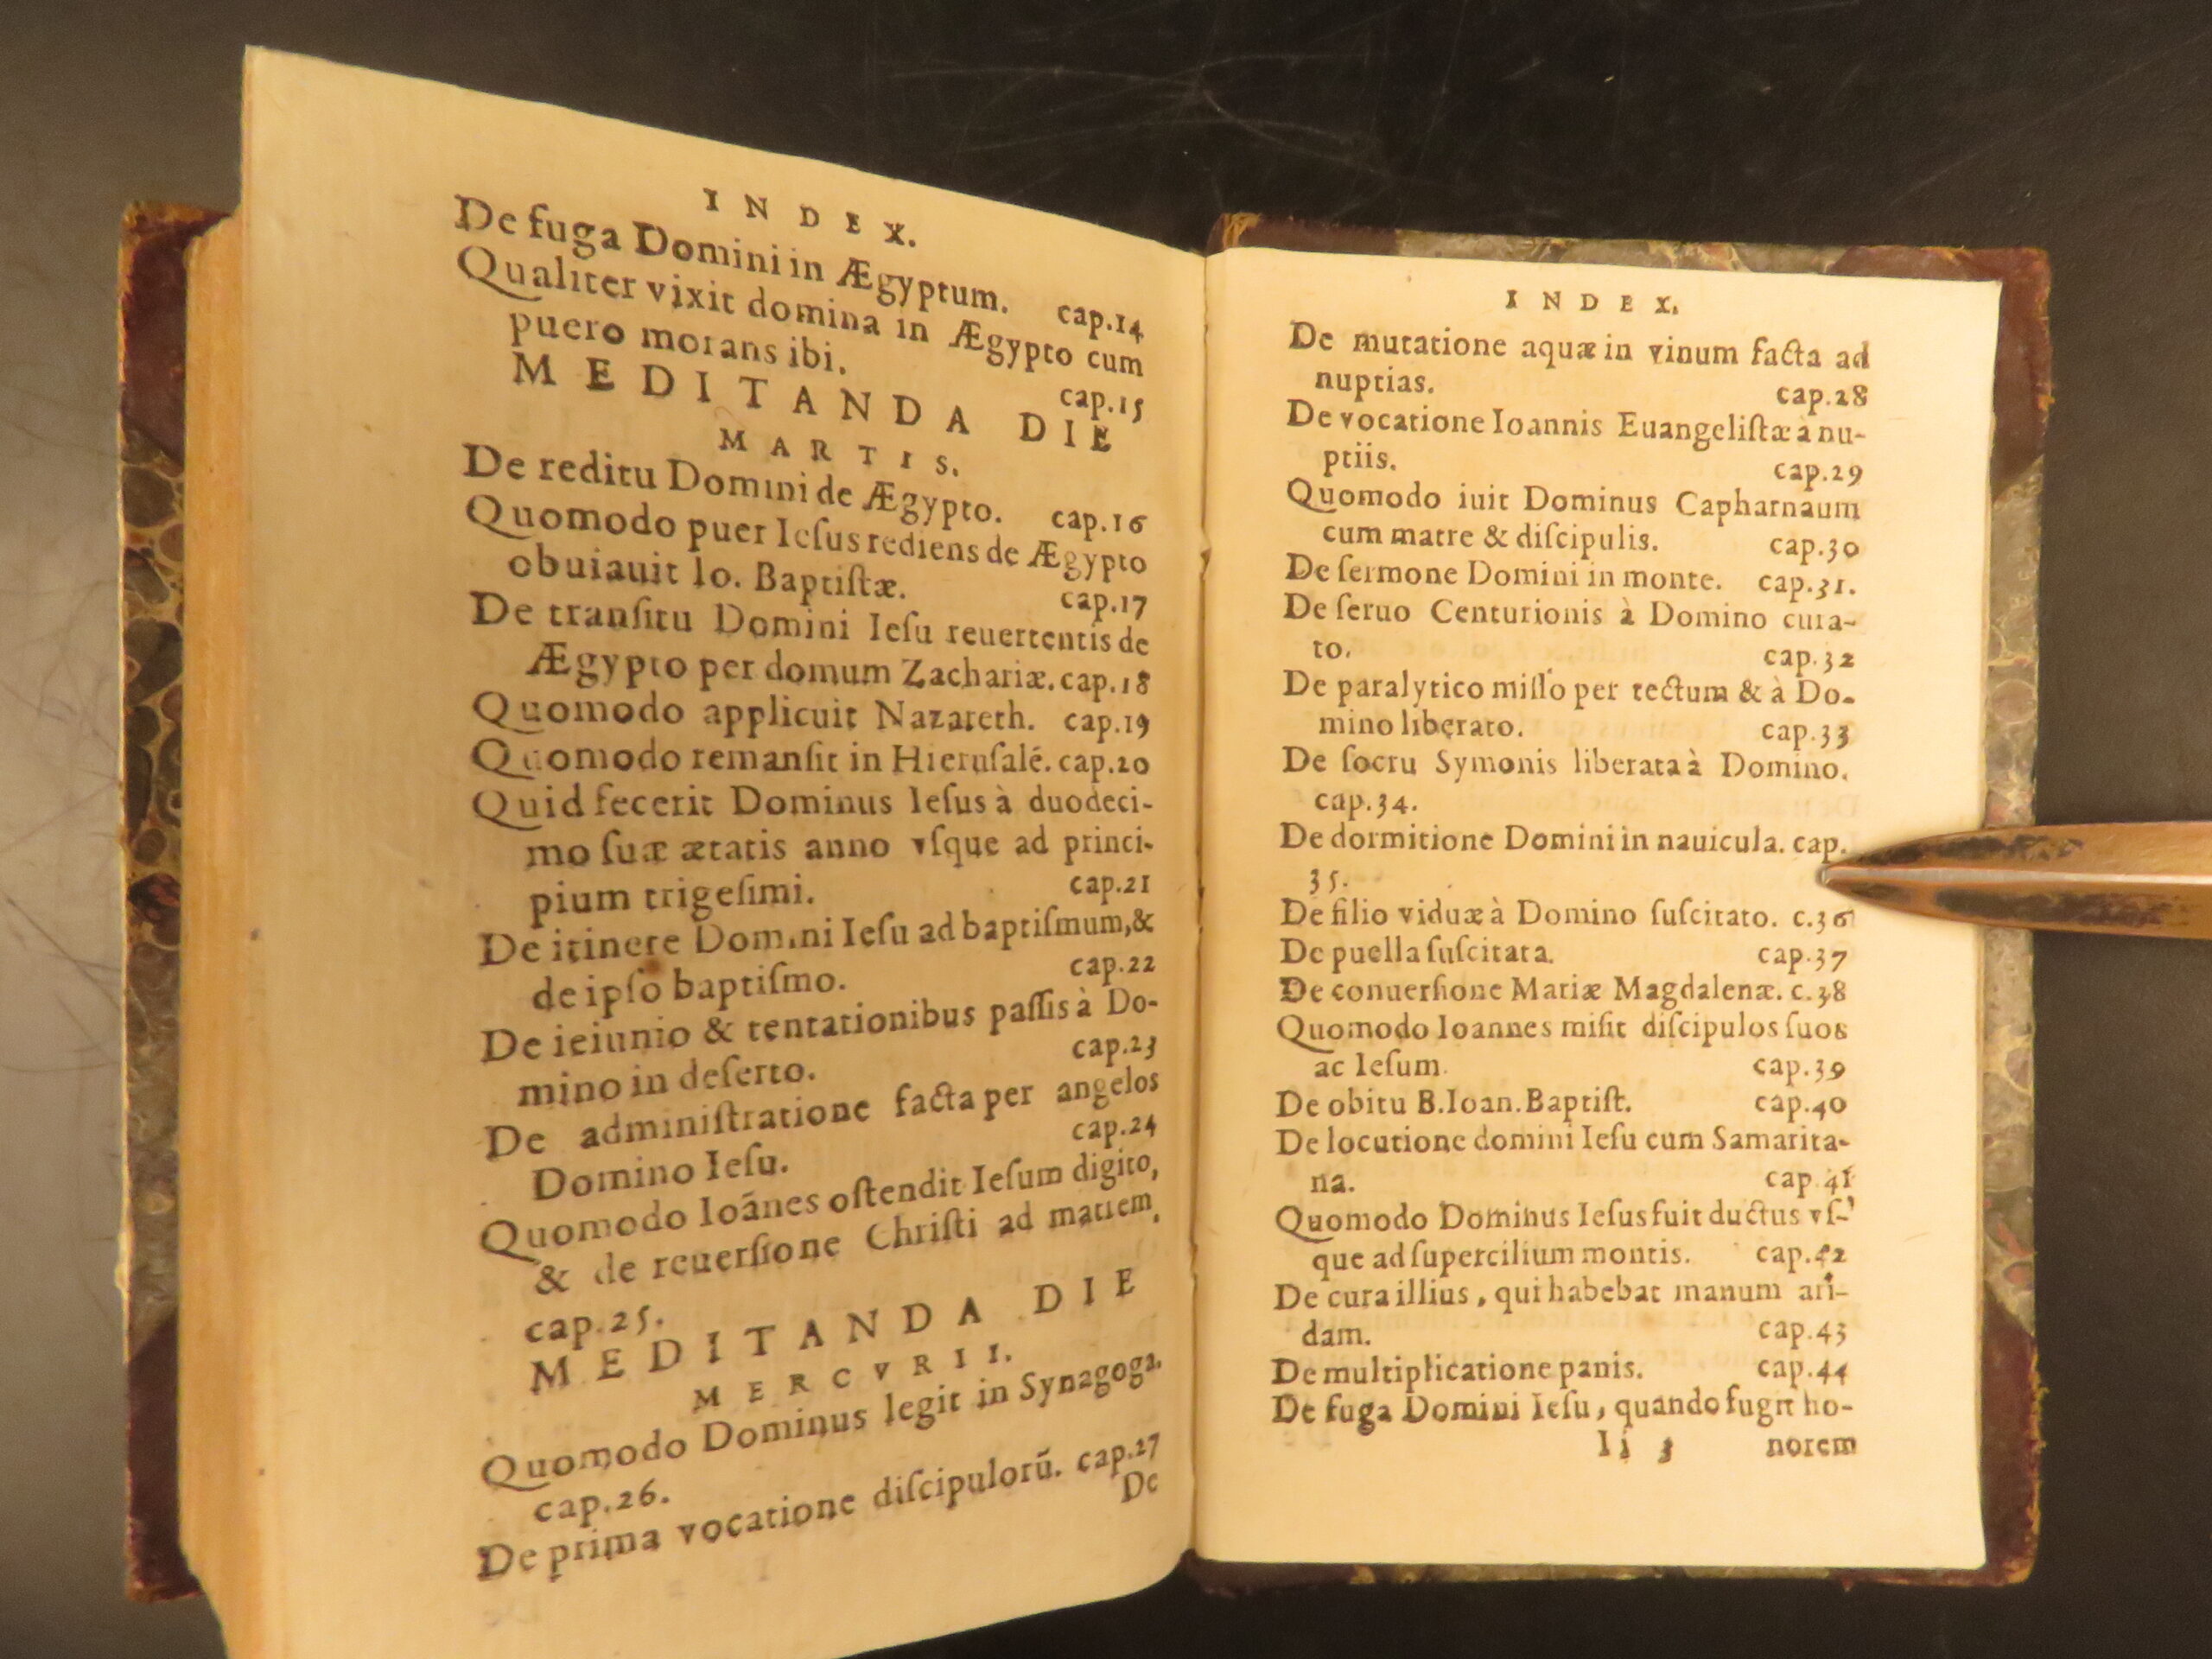 INDEX.
De fuga Domini in Ægyptum. cap.14
Qualiter vixit domina in Ægypto cum
puero morans ibi. cap.15
MEDITANDA DIE
MARTIS.
De reditu Domini de Ægypto. cap.16
Quomodo puer Ieſus rediens de Ægypto
obuiauit Io. Baptiſtæ. cap.17
De tranſitu Domini Ieſu reuertentis de
Ægypto per domum Zachariæ. cap.18
Quomodo applicuit Nazareth. cap.19
Quomodo remanſit in Hieruſalé. cap.20
Quid fecerit Dominus Ieſus à duodeci-
mo ſuæ ætatis anno vſque ad princi-
pium trigeſimi. cap.21
De itinere Domini Ieſu ad baptiſmum, &
de ipſo baptiſmo. cap.22
De ieiunio & tentationibus paſſis à Do-
mino in deſerto. cap.23
De adminiſtratione facta per angelos
Domino Ieſu. cap.24
Quomodo Ioánes oſtendit Ieſum digito,
& de reuerſione Chriſti ad matrem,
cap.25.
MEDITANDA DIE
MERCVRII.
Quomodo Dominus legit in Synagoga.
cap.26.
De prima vocatione diſcipulorū. cap.27
De
INDEX.
De mutatione aquæ in vinum facta ad
nuptias. cap.28
De vocatione Ioannis Euangeliſtæ à nu-
ptiis. cap.29
Quomodo iuit Dominus Capharnaum
cum matre & diſcipulis. cap.30
De ſermone Domini in monte. cap.31.
De ſeruo Centurionis à Domino cura-
to. cap.32
De paralytico miſſo per tectum & à Do-
mino liberato. cap.33
De ſocru Symonis liberata à Domino.
cap.34.
De dormitione Domini in nauicula. cap.
35.
De filio viduæ à Domino ſuſcitato. c.36
De puella ſuſcitata. cap.37
De conuerſione Mariæ Magdalenæ. c.38
Quomodo Ioannes miſit diſcipulos ſuos
ac Ieſum. cap.39
De obitu B.Ioan.Baptiſt. cap.40
De locutione domini Ieſu cum Samarita-
na. cap.41
Quomodo Dominus Ieſus fuit ductus vſ-
que ad ſupercilium montis. cap.42
De cura illius, qui habebat manum ari-
dam. cap.43
De multiplicatione panis. cap.44
De fuga Domini Ieſu, quando fugit ho-
Ii 3 norem